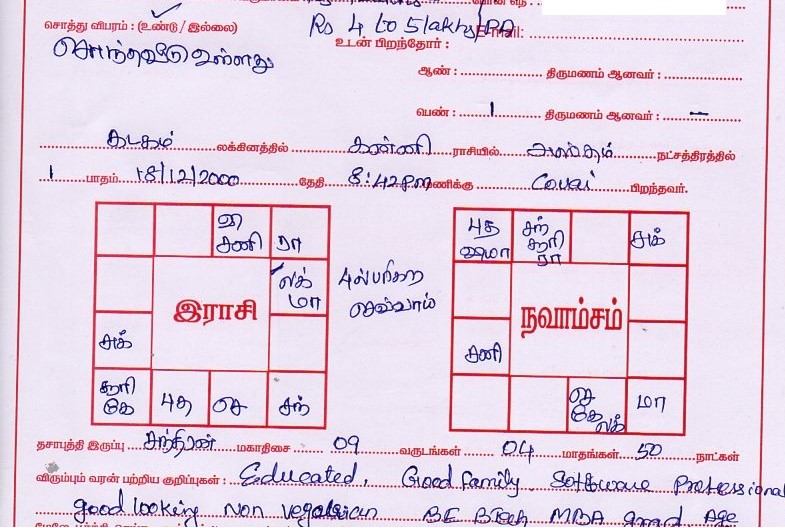 சொத்து விபரம் : (உண்டு / இல்லை) Rs 4 to 5 lakhs/PA Email:
சொந்தவீடு உள்ளது
உடன் பிறந்தோர் :
ஆண் : திருமணம் ஆனவர் :
பெண் : 1 திருமணம் ஆனவர் : —
கடகம் லக்கினத்தில் கன்னி ராசியில் அஸ்தம் நட்சத்திரத்தில்
1 பாதம் 18/12/2000 தேதி 8:42 PM மணிக்கு Covai பிறந்தவர்.
சனி ரா
லக் மா
சுக்
சூரி கே புத செ சந்
இராசி
செவ்வாய்
புத சந் சூரி ரா சுக்
சனி
செ கே லக் மா
நவாம்சம்
தசாபுத்தி இருப்பு சந்திரன் மகாதிசை 09 வருடங்கள் 04 மாதங்கள் 50 நாட்கள்
விரும்பும் வரன் பற்றிய குறிப்புகள் : Educated, Good family Software Professional
good looking Non Vegetarian BE BTech MBA good Age